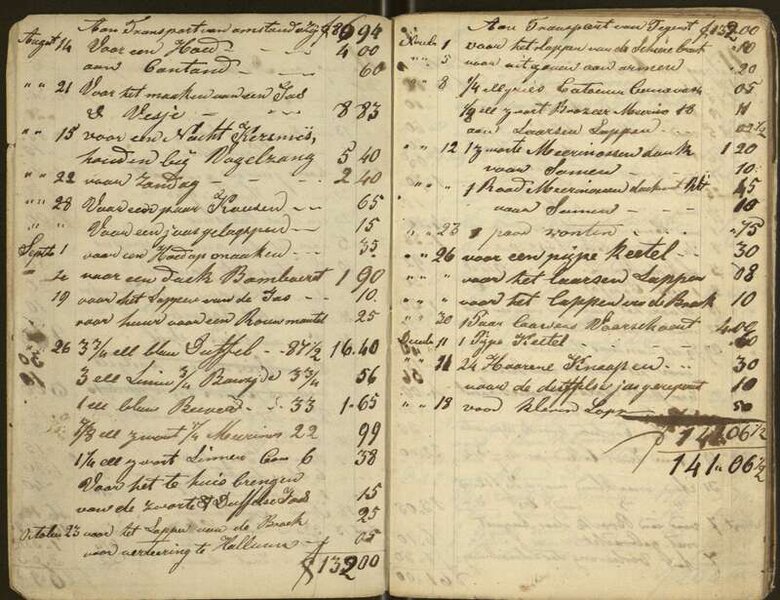 Aan Transport van
August 14 Voor een Hoed - - - 4 00
aan Contand - - 60
" " 21 Voor het maaken van een Jas
& Vesje - - - 8 83
" " 15 voor een Nacht Kersmis,
houden bij Vogelzang 5 40
" " 22 voor Zondag - - - 2 40
" " 28 Voor een paar Kousen - - 65
" " Voor een jas gelappen - - 15
Septb 1 voor een Hoed op maaken - - 35
voor een doek 1 90
19 voor het Lappen van de Jas - - 10
voor huur voor een Rouwmantel 25
" 26 3 3/4 ell blau Duffel - 87 1/2 16.40
3 ell Linnen 3/4 56
1 ell blau Bever - - 33 1-65
7/8 ell zwart 7/4 22 99
1 1/4 ell zwart Linnen 6 38
Voor het te huis brengen
van de zwarte & Duffelse Jas 15
October 23 voor het Lappen van de Broek 25
voor verteering te 05
ƒ 132 00
Aan Transport van ƒ 132.00
1 voor het lappen van de broek 10
" " 5 voor uitgaven aan armen - - 20
" " 8 ell Catoen 05
1/2 ell zwart 18 11
aan Laarsen Lappen - - 02 1/2
" " 12 1 zwarte doek 1 20
voor Samen - - 10
" " 1 Rood 45
voor Samen - - 10
" " 23 1 paar wanten - - 75
" " 26 voor een pijpe Keetel - - 30
" " " voor het laarsen Lappen 08
" " " voor het lappen van de Broek 10
" " 30 1 Paar laarsens Voorschoent 4.00
Decemb 11 1 Pijpe Keetel - - 60
" " 11 24 Haarene Knoopen - - 30
voor de duffelse jas gerepart 10
" " 18 voor kleine 50
ƒ 141.06 1/2
141.06 1/2